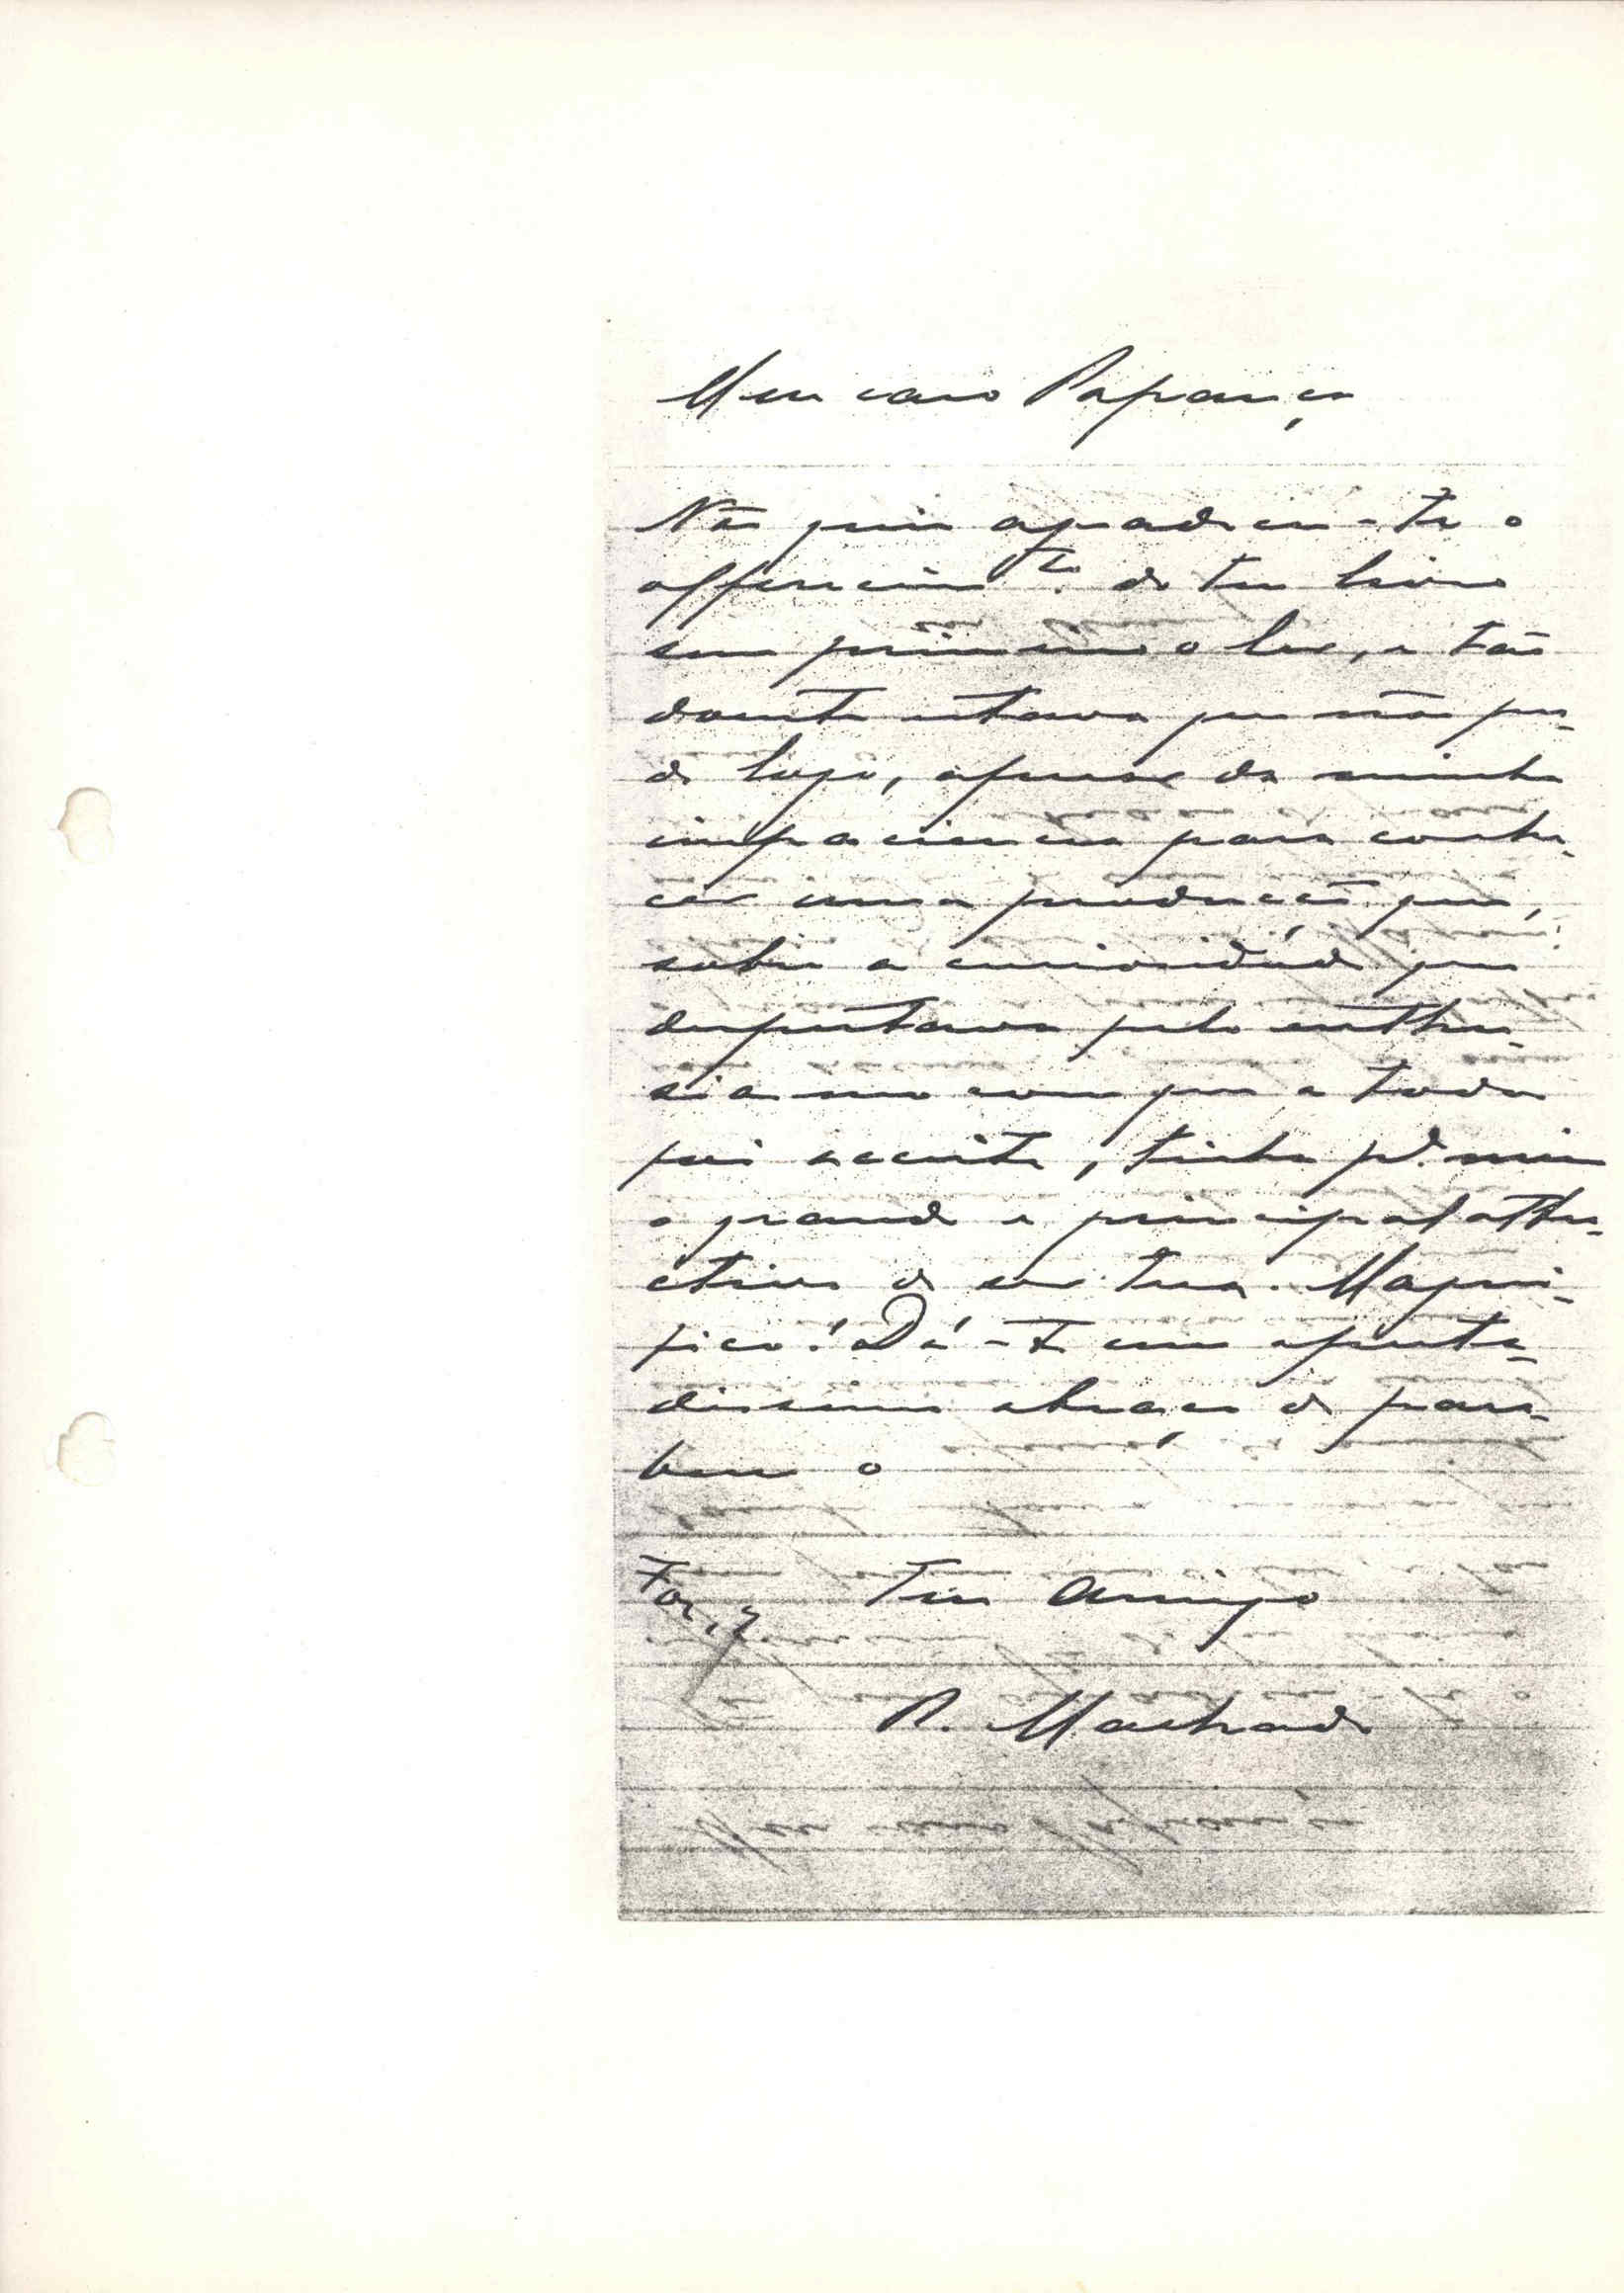 Meu caro Papança
Não quiz agradecer-te o
offerecim.to do teu livro
sem primeiro o ler, e tão
doente estava que não pu-
de logo, apesar da minha
impaciencia para conhe-
cer uma producção que,
sobre a curiosidade que
despertava pelo enthu-
siasmo com que a todos
foi acceite, tinha p.ª mim
o grande e principal attra-
ctivo de ser tua. Magni-
fico! Dá-te um aperta-
dissimo abraço de para-
bens o
Teu amigo
Foz, 7
R. Machado